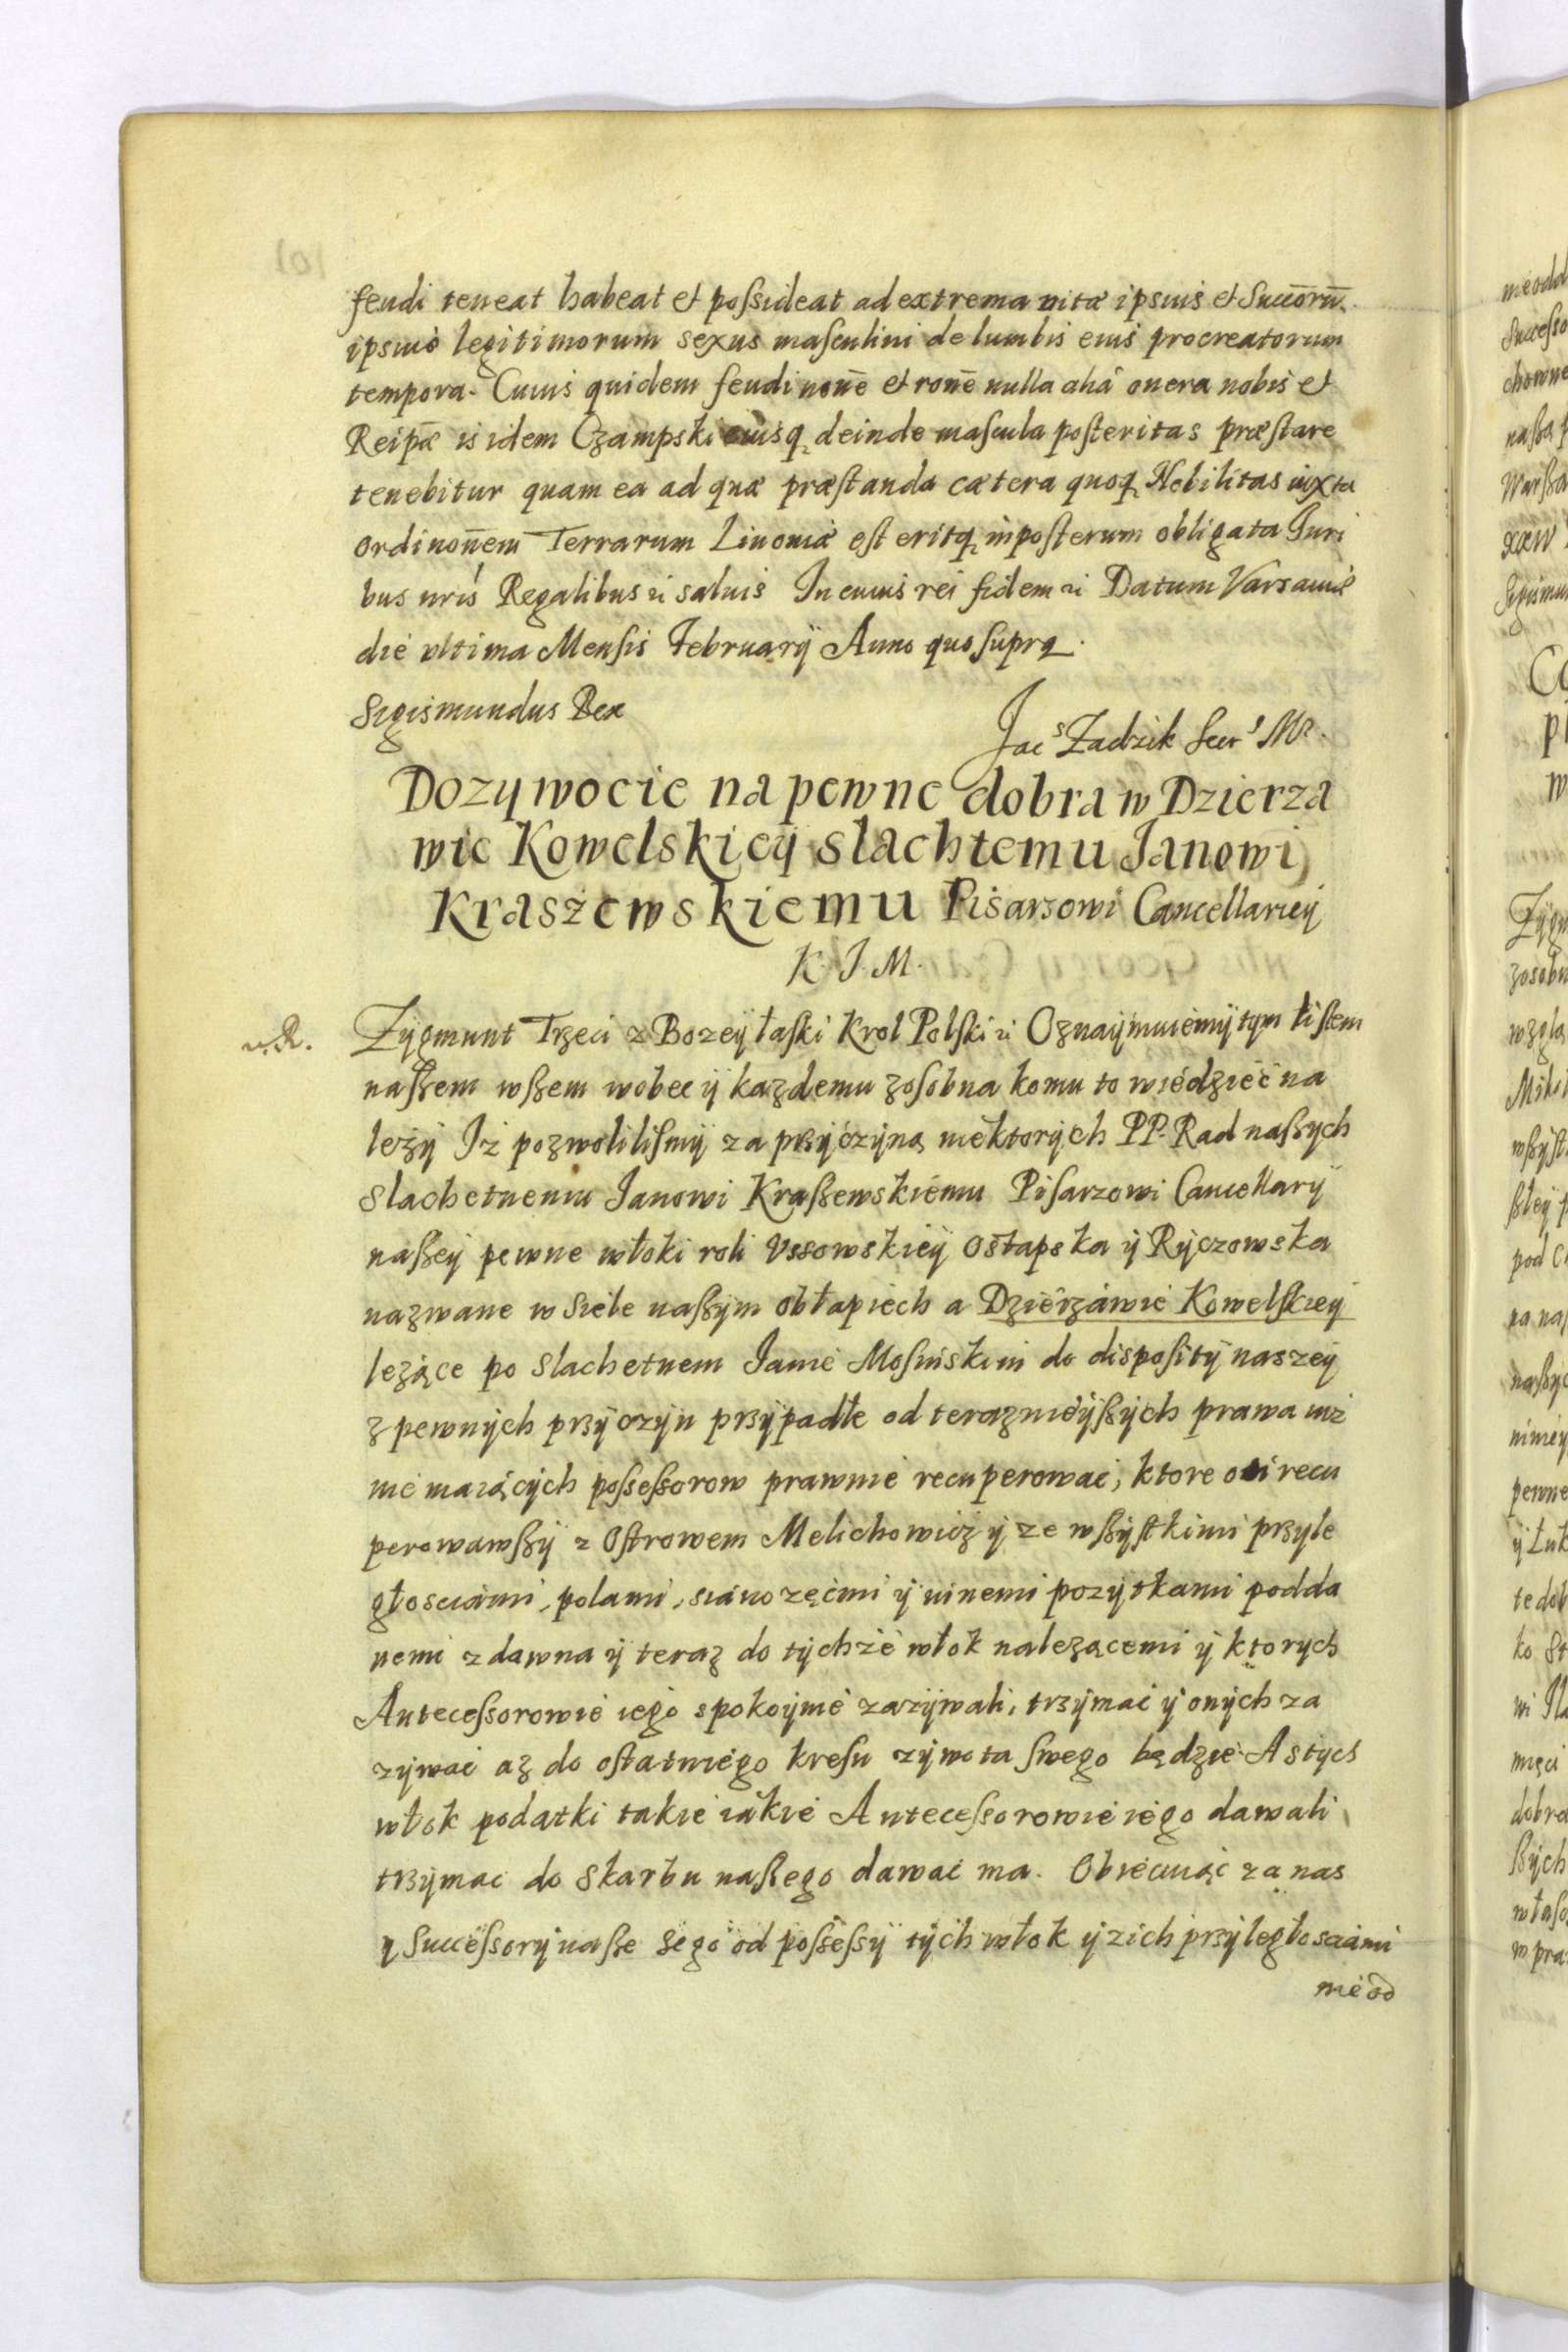 feudi teneat habeat et possideat ad extrema vitæ ipsius et Succorū
ipsius legitimorum sexus masculini de lumbis eius procreatorum
tempora. Cuius quidem feudi noīe et roīe nulla alia onera nobis et
Reipæ is idem Czampski eiusq deinde mascula posteritas præstare
tenebitur quam ea ad quæ præstanda cætera quoq Nobilitas iuxta
ordinoñem Terrarum Livoniæ est eritq inposterum obligata Juri
bus nrīs Regalibus salvis In cuius rei fidem Datum Varsaviæ
die vltima Mensis February Anno quo supra.
Sigismundus Rex
Jacs Zadzik Secr
Dozywocie na pewne dobra w Dzierza
wie Kowelskiey slachtemu Janowi
Kraszewskiemu Pisarzowi Cancellariey
K. J. M.
Zygmunt Trzeci z Bozey łaski Krol Polski Oznaymuiemy tym listem
naszem wszem wobec y kazdemu zosobna komu to wiedzieć na
lezy Iż pozwolilismy za przyczyną niektorych PP. Rad naszych
Slachetnemu Janowi Kraszewskiemu Pisarzowi Cancellary
naszey pewne włoki roli Vssowskiey Ostapska y Ryczowska
nazwane w siele naszym obłapiech a Dzierzawie Kowelskiey
lezące po Slachetnem Janie Mosinskim do disposity naszey
z pewnych przyczyn przypadłe od teraznieyszych prawa
nie maiących possessorow prawnie recuperować, ktore on recu
perowawszy z Ostrowem Melichowicz y ze wszystkimi przyle
głosciami, polami, sianozęćmi y inemi pozytkami podda
nemi zdawna y teraz do tychże włok nalezącemi y ktorych
Antecessorowie iego spokoynie zazywali, trzymać y onych za
zywać az do ostatniego kresu zywota swego będzie. A s tych
włok podatki takie iakie Antecessorowie iego dawali
trzymac do skarbu naszego dawać ma. Obiecuiąc za nas
y Successory nasze Jego od possessy tych włok y z ich przyległosciami
nie od